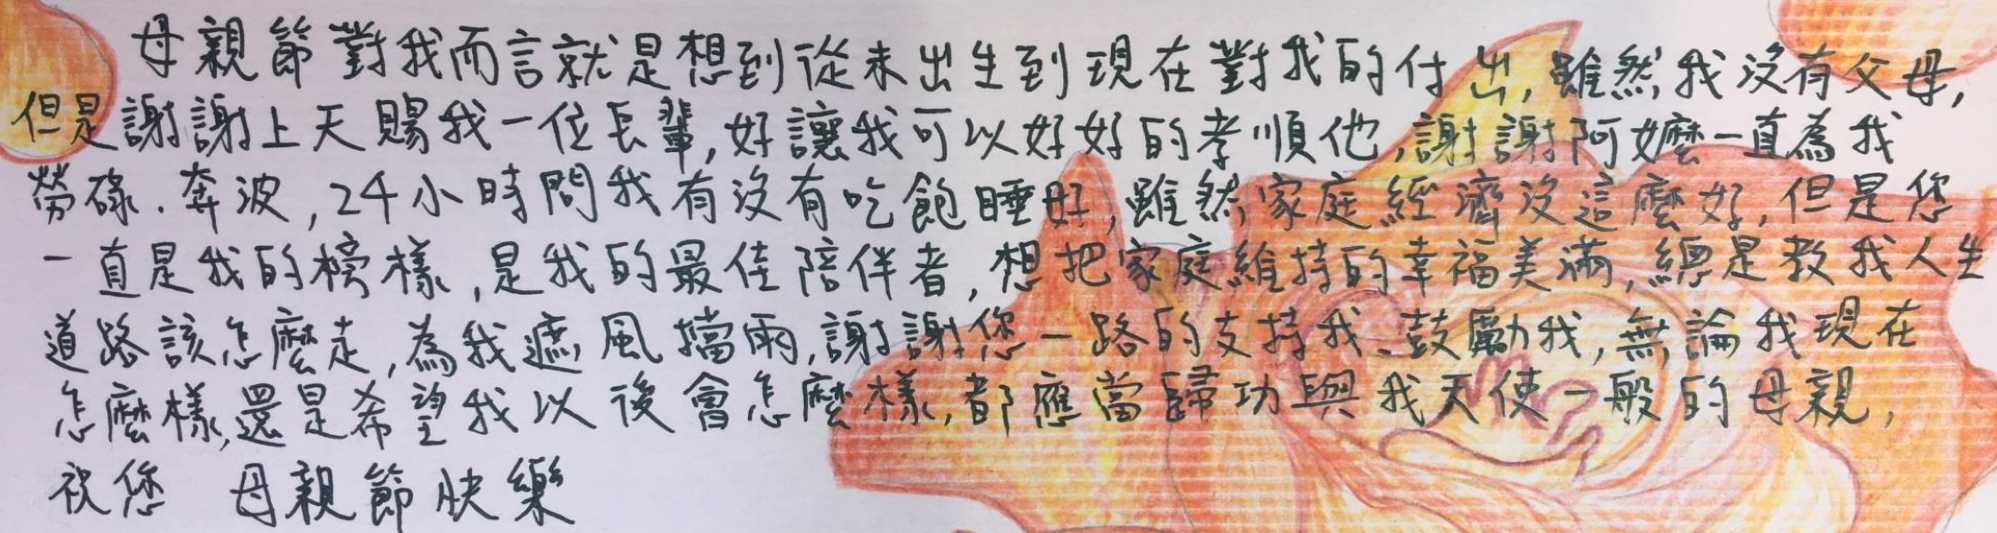 母親節對我而言就是想到從未出生到現在對我的付出,雖然我沒有父母,
但是謝謝上天賜我一位長輩,好讓我可以好好的孝順他,謝謝阿嬤一直為我
勞碌、奔波,24小時問我有沒有吃飽睡好,雖然家庭經濟沒這麼好,但是您
一直是我的榜樣,是我的最佳陪伴者,想把家庭維持的幸福美滿,總是教我人生
道路該怎麼走,為我遮風擋雨,謝謝您一路的支持我、鼓勵我,無論我現在
怎麼樣,還是希望我以後會怎麼樣,都應當歸功與我天使一般的母親,
祝您 母親節快樂